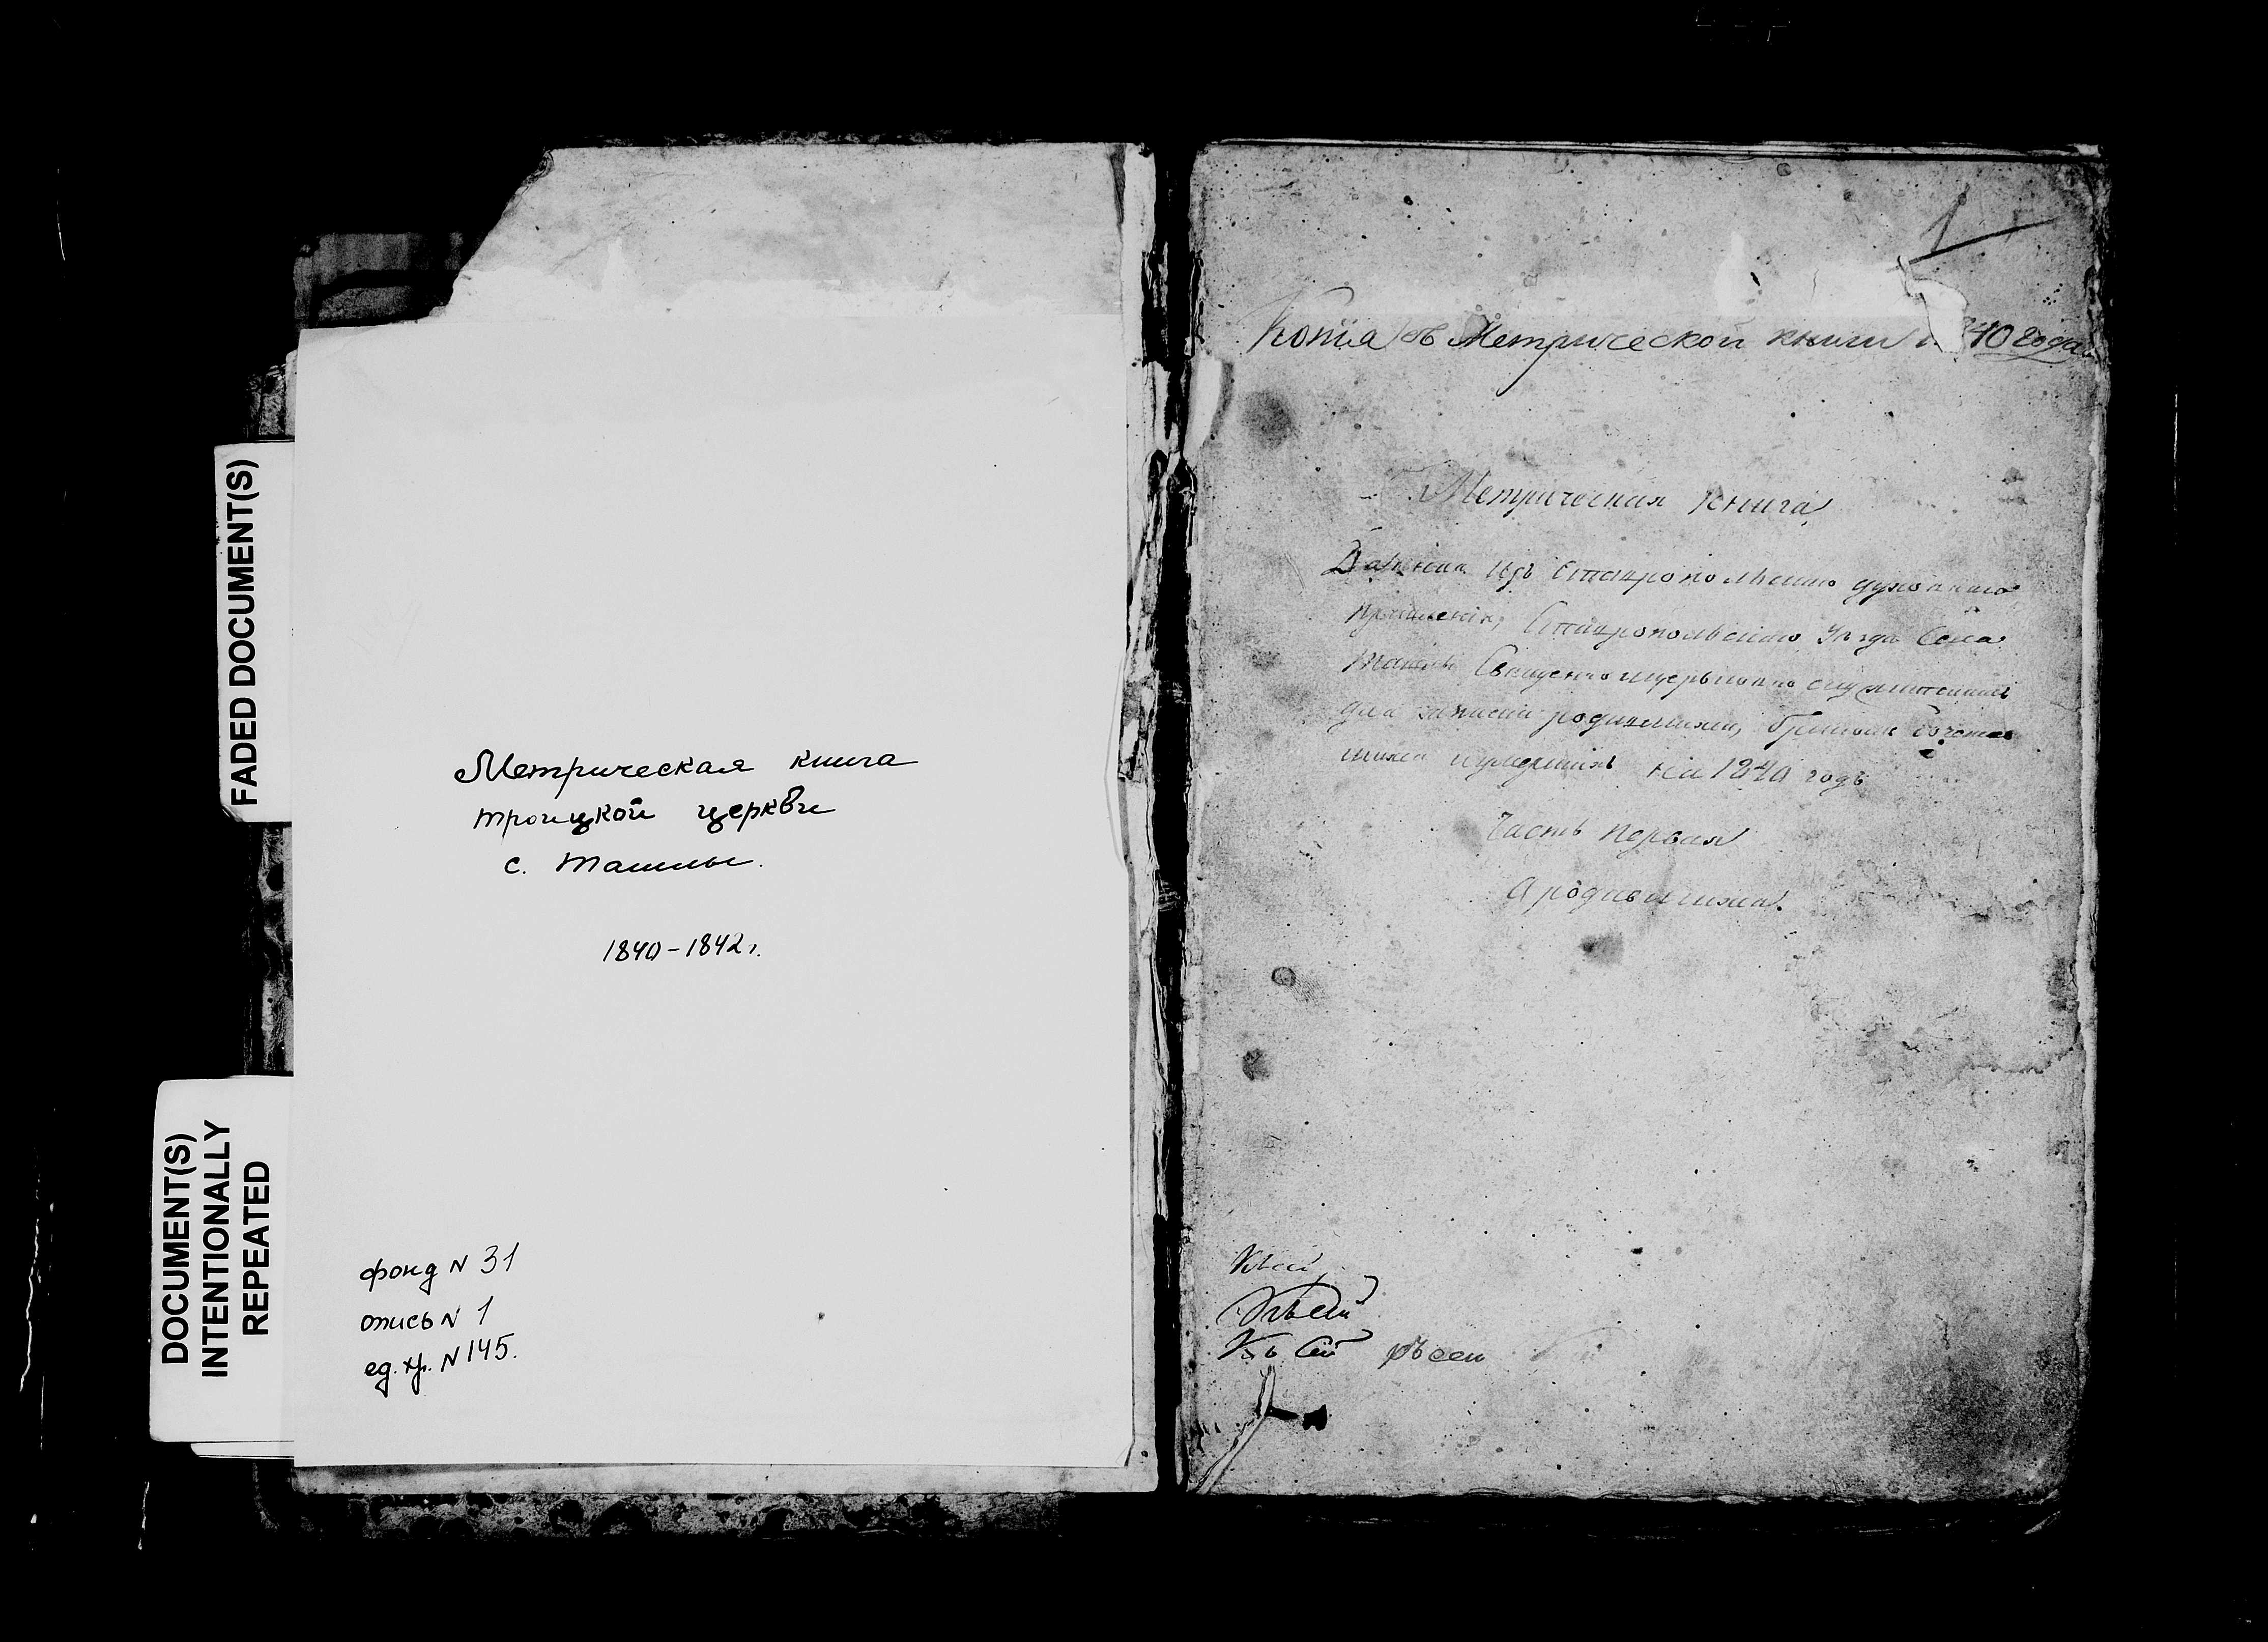 FADED DOCUMENT(S)
DOCUMENT(S)
INTENTIONALLY
REPEATED
Метрическая книга
троицкой церкви
с. Ташлы.
1840-1842 г.
фонд N 31
опись N 1
ед. хр. N 145.
1
Копiя съ Метрической книги 40 года
Метрическая книга
Данная изъ Ставропольскаго духовнаго
правленiя, Ставропольскаго Уезда Села
Ташлы Священноцерковнослужителямъ
для записи родившихся, бракомъ сочетав
шихся и умершихъ на 1840 годъ
Часть первая
О родившихся.
Къ сей